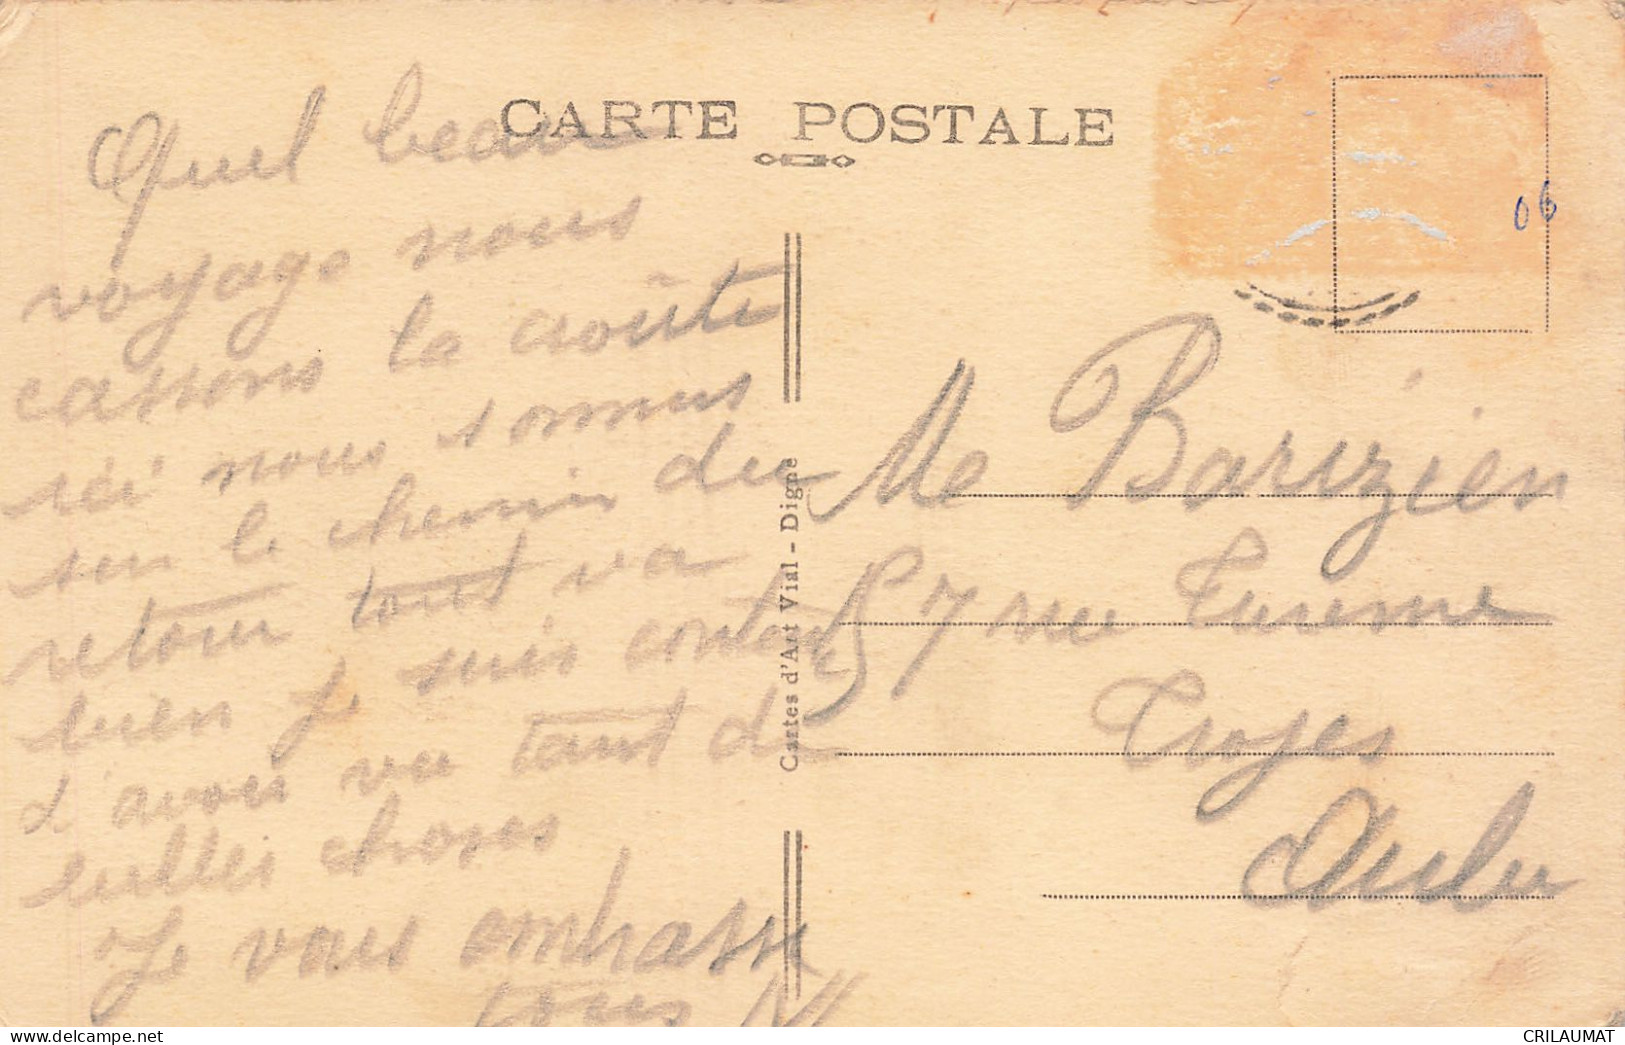 CARTE POSTALE
Quel beau
voyage nous
cassons la croûte
ici nous sommes
sur le chemin du
retour tout va
bien je suis content
d'avoir vu tant de
belles choses
Je vous embrasse
tous
Cartes d'Art Vial - Digne
06
Me Barizien
57 rue Turenne
Troyes
Aube
CRILAUMAT